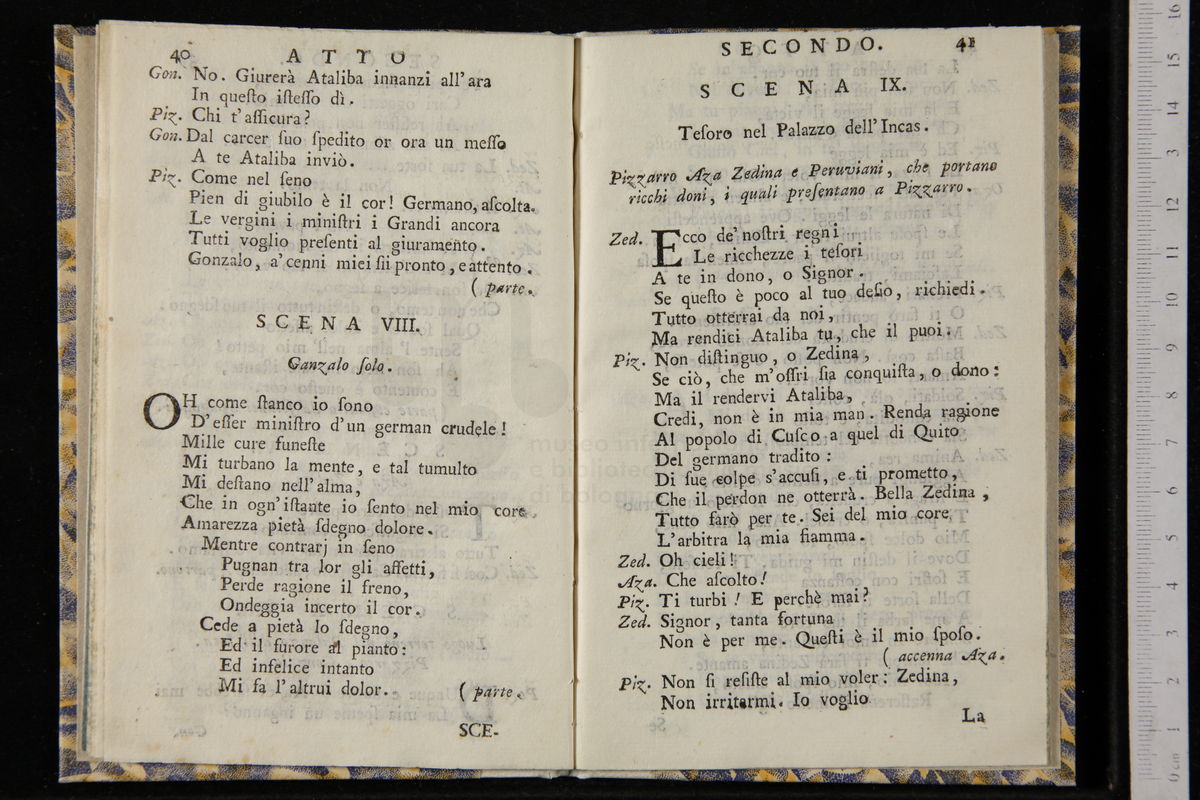 40 ATTO
Gon. No. Giurerà Ataliba innanzi all'ara
In queſto iſteſſo dì.
Piz. Chi t'aſſicura?
Gon. Dal carcer ſuo ſpedito or ora un meſſo
A te Ataliba inviò.
Piz. Come nel ſeno
Pien di giubilo è il cor! Germano, aſcolta.
Le vergini i miniſtri i Grandi ancora
Tutti voglio preſenti al giuramento.
Gonzalo, a' cenni miei ſii pronto, e attento.
( parte.
SCENA VIII.
Ganzalo ſolo.
OH come ſtanco io ſono
D'eſſer miniſtro d'un german crudele!
Mille cure funeſte
Mi turbano la mente, e tal tumulto
Mi deſtano nell'alma,
Che in ogn'iſtante io ſento nel mio core
Amarezza pietà ſdegno dolore.
Mentre contrarj in ſeno
Pugnan tra lor gli affetti,
Perde ragione il freno,
Ondeggia incerto il cor.
Cede a pietà lo ſdegno,
Ed il furore al pianto:
Ed infelice intanto
Mi fa l'altrui dolor. ( parte.
SCE-
SECONDO. 41
SCENA IX.
Teſoro nel Palazzo dell'Incas.
Pizzarro Aza Zedina e Peruviani, che portano
ricchi doni, i quali preſentano a Pizzarro.
Zed. Ecco de' noſtri regni
Le ricchezze i teſori
A te in dono, o Signor.
Se queſto è poco al tuo deſio, richiedi.
Tutto otterrai da noi,
Ma rendici Ataliba tu, che il puoi.
Piz. Non diſtinguo, o Zedina,
Se ciò, che m'offri ſia conquiſta, o dono:
Ma il rendervi Ataliba,
Credi, non è in mia man. Renda ragione
Al popolo di Cuſco a quel di Quito
Del germano tradito:
Di ſue colpe s'accuſi, e ti prometto,
Che il perdon ne otterrà. Bella Zedina,
Tutto farò per te. Sei del mio core
L'arbitra la mia fiamma.
Zed. Oh cieli!
Aza. Che aſcolto!
Piz. Ti turbi! E perchè mai?
Zed. Signor, tanta fortuna
Non è per me. Queſti è il mio ſpoſo.
( accenna Aza.
Piz. Non ſi reſiſte al mio voler: Zedina,
Non irritarmi. Io voglio
La
museo
e biblioteca
di bologna
0 cm 1 2 3 4 5 6 7 8 9 10 11 12 13 14 15 16